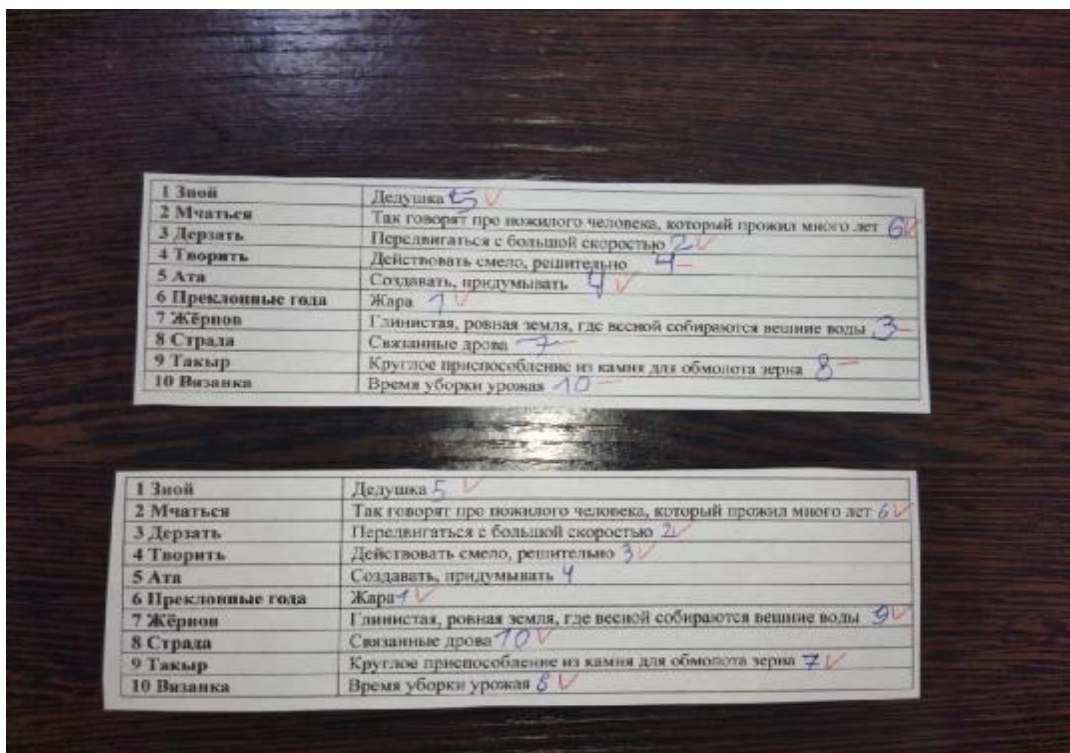 1 Зной Дедушка 5
2 Мчаться Так говорят про пожилого человека, который прожил много лет 6
3 Дерзать Передвигаться с большой скоростью 2
4 Творить Действовать смело, решительно 4
5 Ата Создавать, придумывать 4
6 Преклонные года Жара 1
7 Жёрнов Глинистая, ровная земля, где весной собираются вешние воды 3
8 Страда Связанные дрова 7
9 Такыр Круглое приспособление из камня для обмолота зерна 8
10 Вязанка Время уборки урожая 10
1 Зной Дедушка 5
2 Мчаться Так говорят про пожилого человека, который прожил много лет 6
3 Дерзать Передвигаться с большой скоростью 2
4 Творить Действовать смело, решительно 3
5 Ата Создавать, придумывать 4
6 Преклонные года Жара 1
7 Жёрнов Глинистая, ровная земля, где весной собираются вешние воды 9
8 Страда Связанные дрова 10
9 Такыр Круглое приспособление из камня для обмолота зерна 7
10 Вязанка Время уборки урожая 8